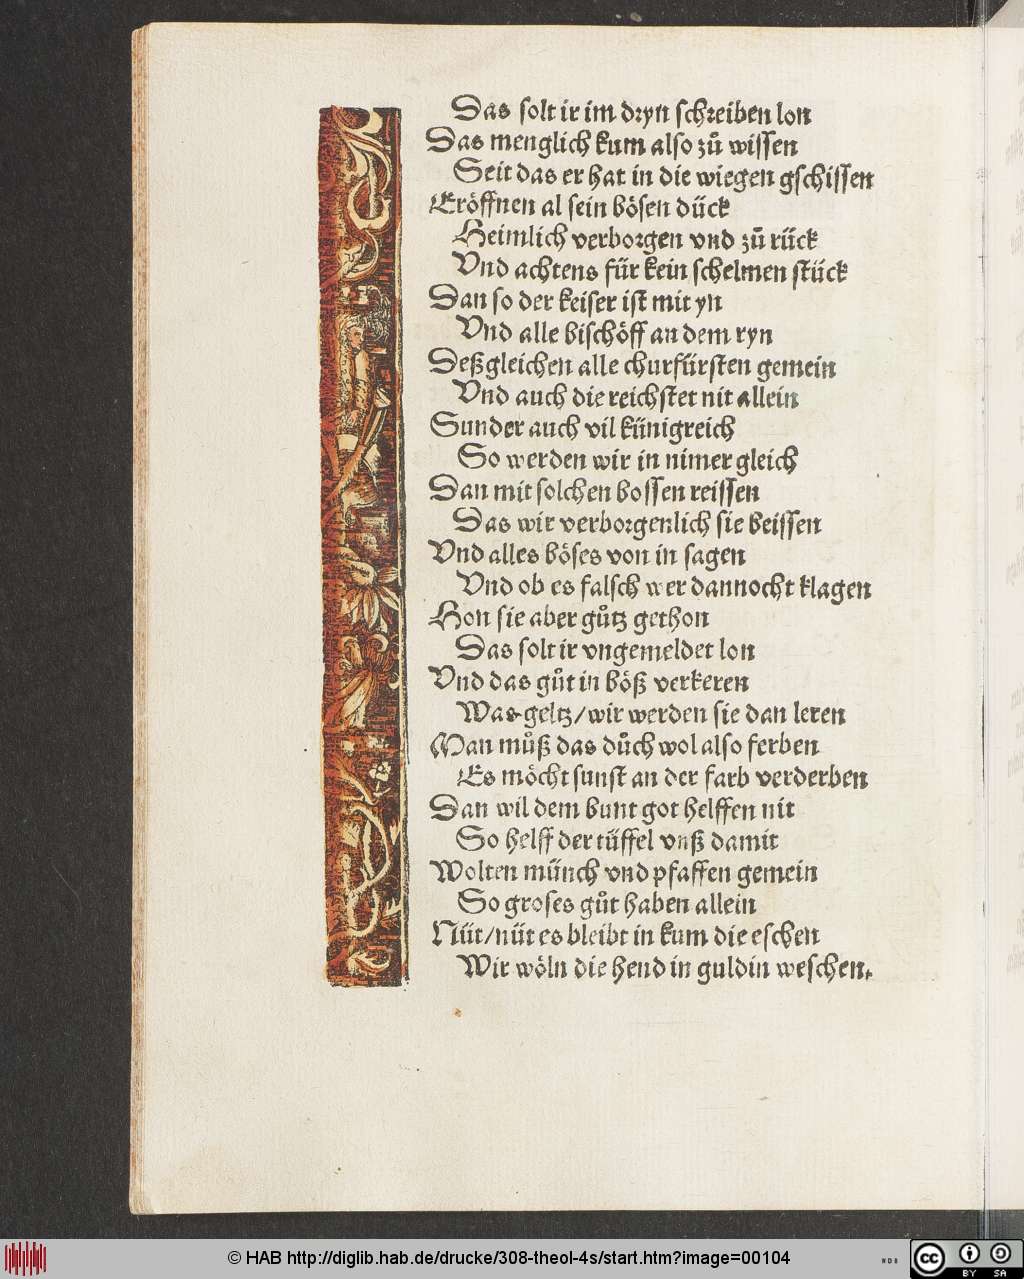 Das solt ir im dryn schreiben lon
Das menglich kum also zů wissen
Seit das er hat in die wiegen gschissen
Eröffnen al sein bösen dück
Heimlich verborgen vnd zů rück
Vnd achtens für kein schelmen stück
Dan so der keiser ist mit yn
Vnd alle bischöff an dem ryn
Deßgleichen alle churfürsten gemein
Vnd auch die reichstet nit allein
Sunder auch vil künigreich
So werden wir in nimer gleich
Dan mit solchen bossen reissen
Das wir verborgenlich sie beissen
Vnd alles böses von in sagen
Vnd ob es falsch wer dannocht klagen
Hon sie aber gůtz gethon
Das solt ir vngemeldet lon
Vnd das gůt in böß verkeren
Was geltz/wir werden sie dan leren
Man můß das důch wol also ferben
Es möcht sunst an der farb verderben
Dan wil dem bunt got helffen nit
So helff der tüffel vnß damit
Wolten münch vnd pfaffen gemein
So groses gůt haben allein
Nüt/nüt es bleibt in kum die eschen
Wir wöln die hend in guldin weschen.
© HAB http://diglib.hab.de/drucke/308-theol-4s/start.htm?image=00104
cc BY SA